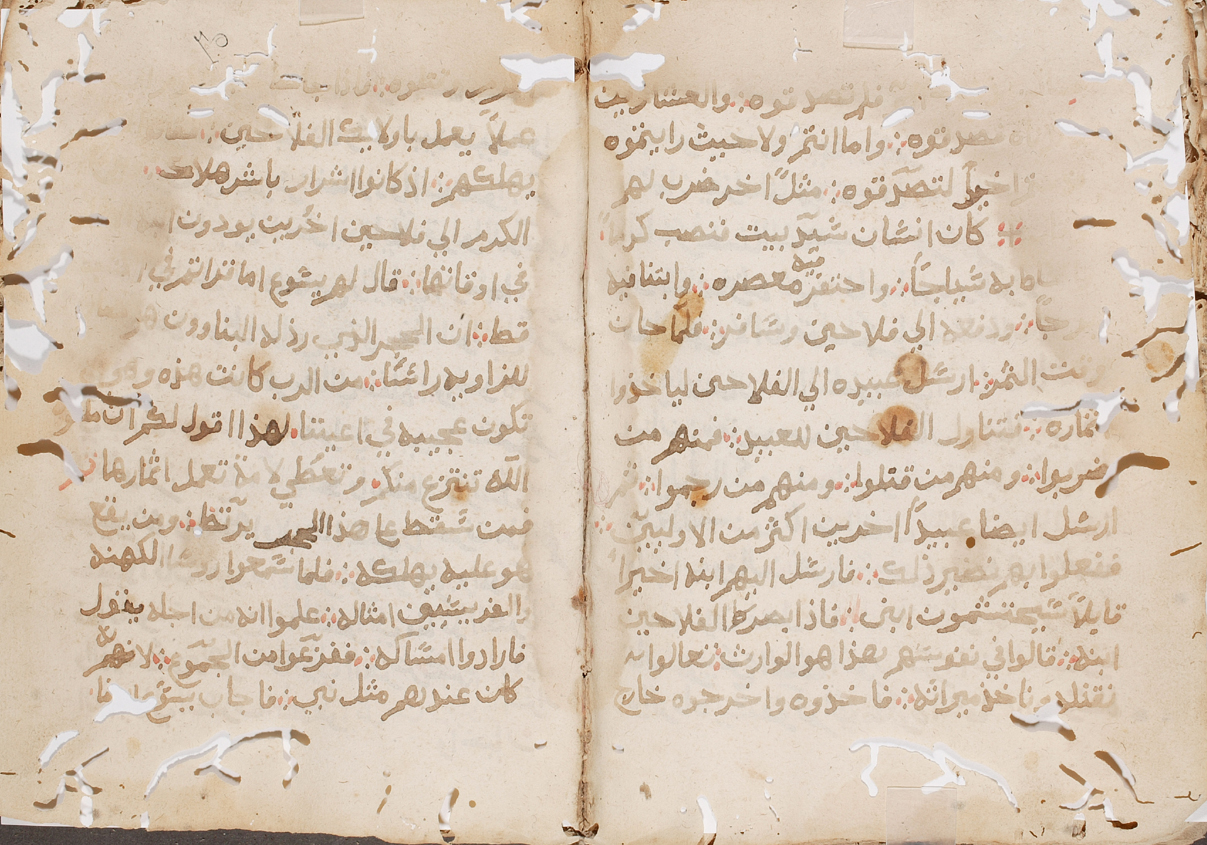 فلم تصدقوه والعشارين
تصدقوه واما انتم ولا حيث رايتموه
اخيراً لتصدقوه مثلاً اخر ضرب لهم
كان انسان سيد بيت فنصب كرماً
به سياجاً واحتفر فيه معصره وابتنا فيه
ودفعه الي فلاحين وسافر فلما حان
وقت الثمر ارسل عبيده الي الفلاحين لياخذوا
ثماره فتناول الفلاحين للعبيد فمنهم من
ضربوا ومنهم من قتلوا ومنهم من رجموا ثم
ارسل ايضا عبيداً اخرين اكثر من الاوليين
ففعلوا بهم نضير ذلك فارسل اليهم ابنه اخيراً
قايلاً سيحتشمون ابني فاذا ابصره الفلاحين
ابنه قالوا في نفوسهم هذا هو الوارث تعالوا
نقتله وناخذ ميراثه فاخذوه واخرجوه خارج
عملاً يعمل باولايك الفلاحين
يهلكهم اذ كانوا اشرار باشر هلاك
الكرم الي فلاحين اخرين يودون
في اوقاتها قال لهم يشوع اما قراتم في
قط ان الحجر الذي رذله البناوون
للزاويه راسًا من الرب كانت هذه وهي
تكون عجيبه في اعيننا لهذا اقول لكم ان ملكوت
الله تنتزع منكم وتعطي لامة تعمل اثمارها
فمن سقط علي هذا الحجر يرتض ومن يقع
هو عليه يهلكه فلما سمعوا روسا الكهنه
والفريسيين امثاله علموا انه من اجله يقول
فارادوا امساكه ففزعوا من الجموع لانهم
كان عندهم مثل نبي فاجاب يسوع